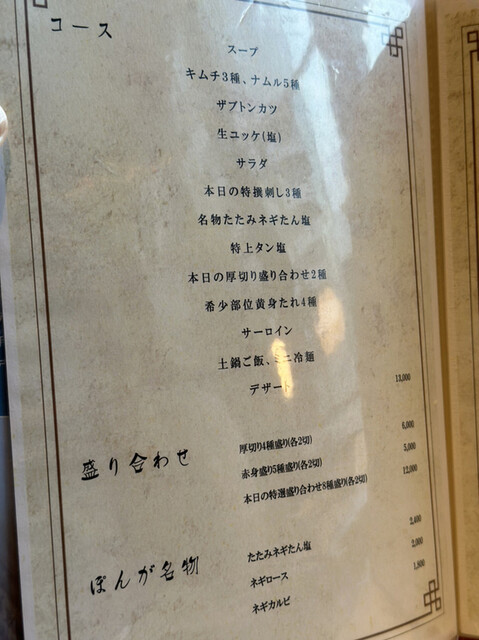 コース
スープ
キムチ3種、ナムル5種
ザブトンカツ
生ユッケ(塩)
サラダ
本日の特撰刺し3種
名物たたみネギたん塩
特上タン塩
本日の厚切り盛り合わせ2種
希少部位黄身たれ4種
サーロイン
土鍋ご飯、ミニ冷麺
デザート
13,000
盛り合わせ
厚切り4種盛り(各2切) 6,000
赤身盛り5種盛り(各2切) 5,000
本日の特選盛り合わせ8種盛り(各2切) 12,000
ぼんが名物
たたみネギたん塩 2,400
ネギロース 2,000
ネギカルビ 1,800